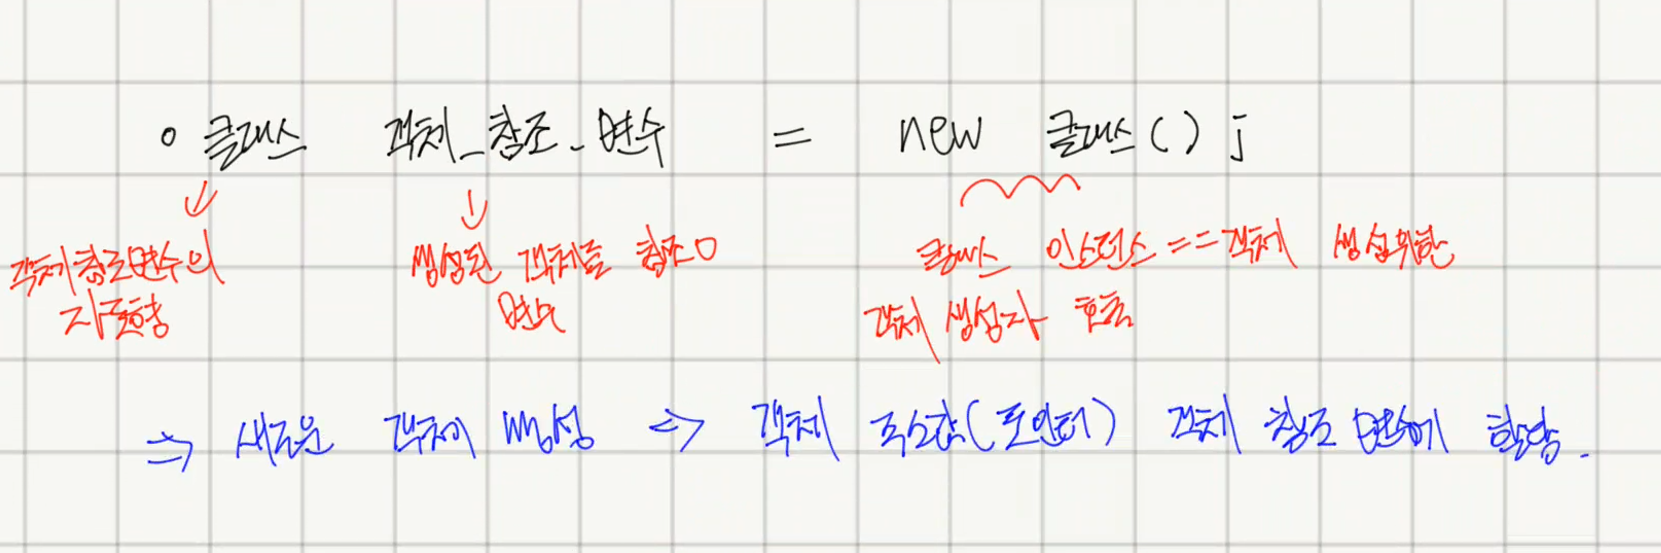 ○ 클래스 객체_참조_변수 = new 클래스();
객체참조변수의
자료형
생성된 객체를 참조○
변수
클래스 인스턴스==객체 생성위한
객체 생성자 호출
⇒ 새로운 객체 생성 ⇒ 객체 주소값(포인터) 객체 참조 변수에 할당.